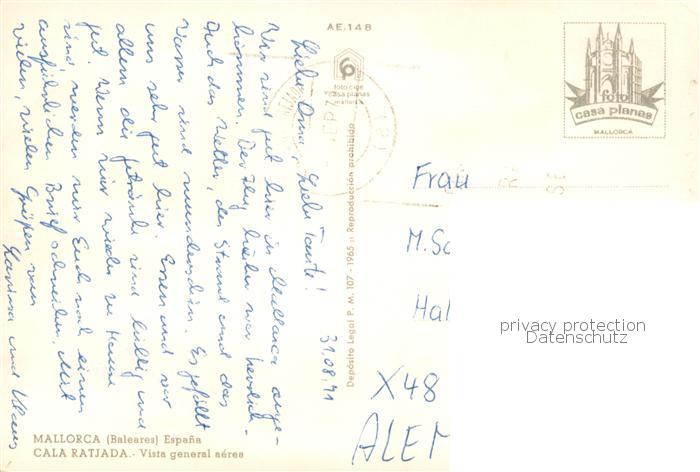 AE.148
foto cige
casa planas
mallorca
foto
casa planas
MALLORCA
Depósito Legal P. M. 107 - 1965 :: Reproducción prohibida
31.08.71
Liebe Oma, liebe Tante!
Wir sind gut hier in Mallorca ange-
kommen. Der Flug hierher war herrlich.
Auch das Wetter, der Strand und das
Wasser sind wunderschön. Es gefällt
uns sehr gut hier. Essen und vor
allem die Getränke sind billig und
gut. Wenn wir wieder zu Hause
sind werden wir Euch noch einen
ausführlichen Brief schreiben. Mit
vielen, vielen Grüßen von
und Klaus
Frau
M. Sc
Hal
X48
ALEM
privacy protection
Datenschutz
MALLORCA (Baleares) España
CALA RATJADA.- Vista general aérea